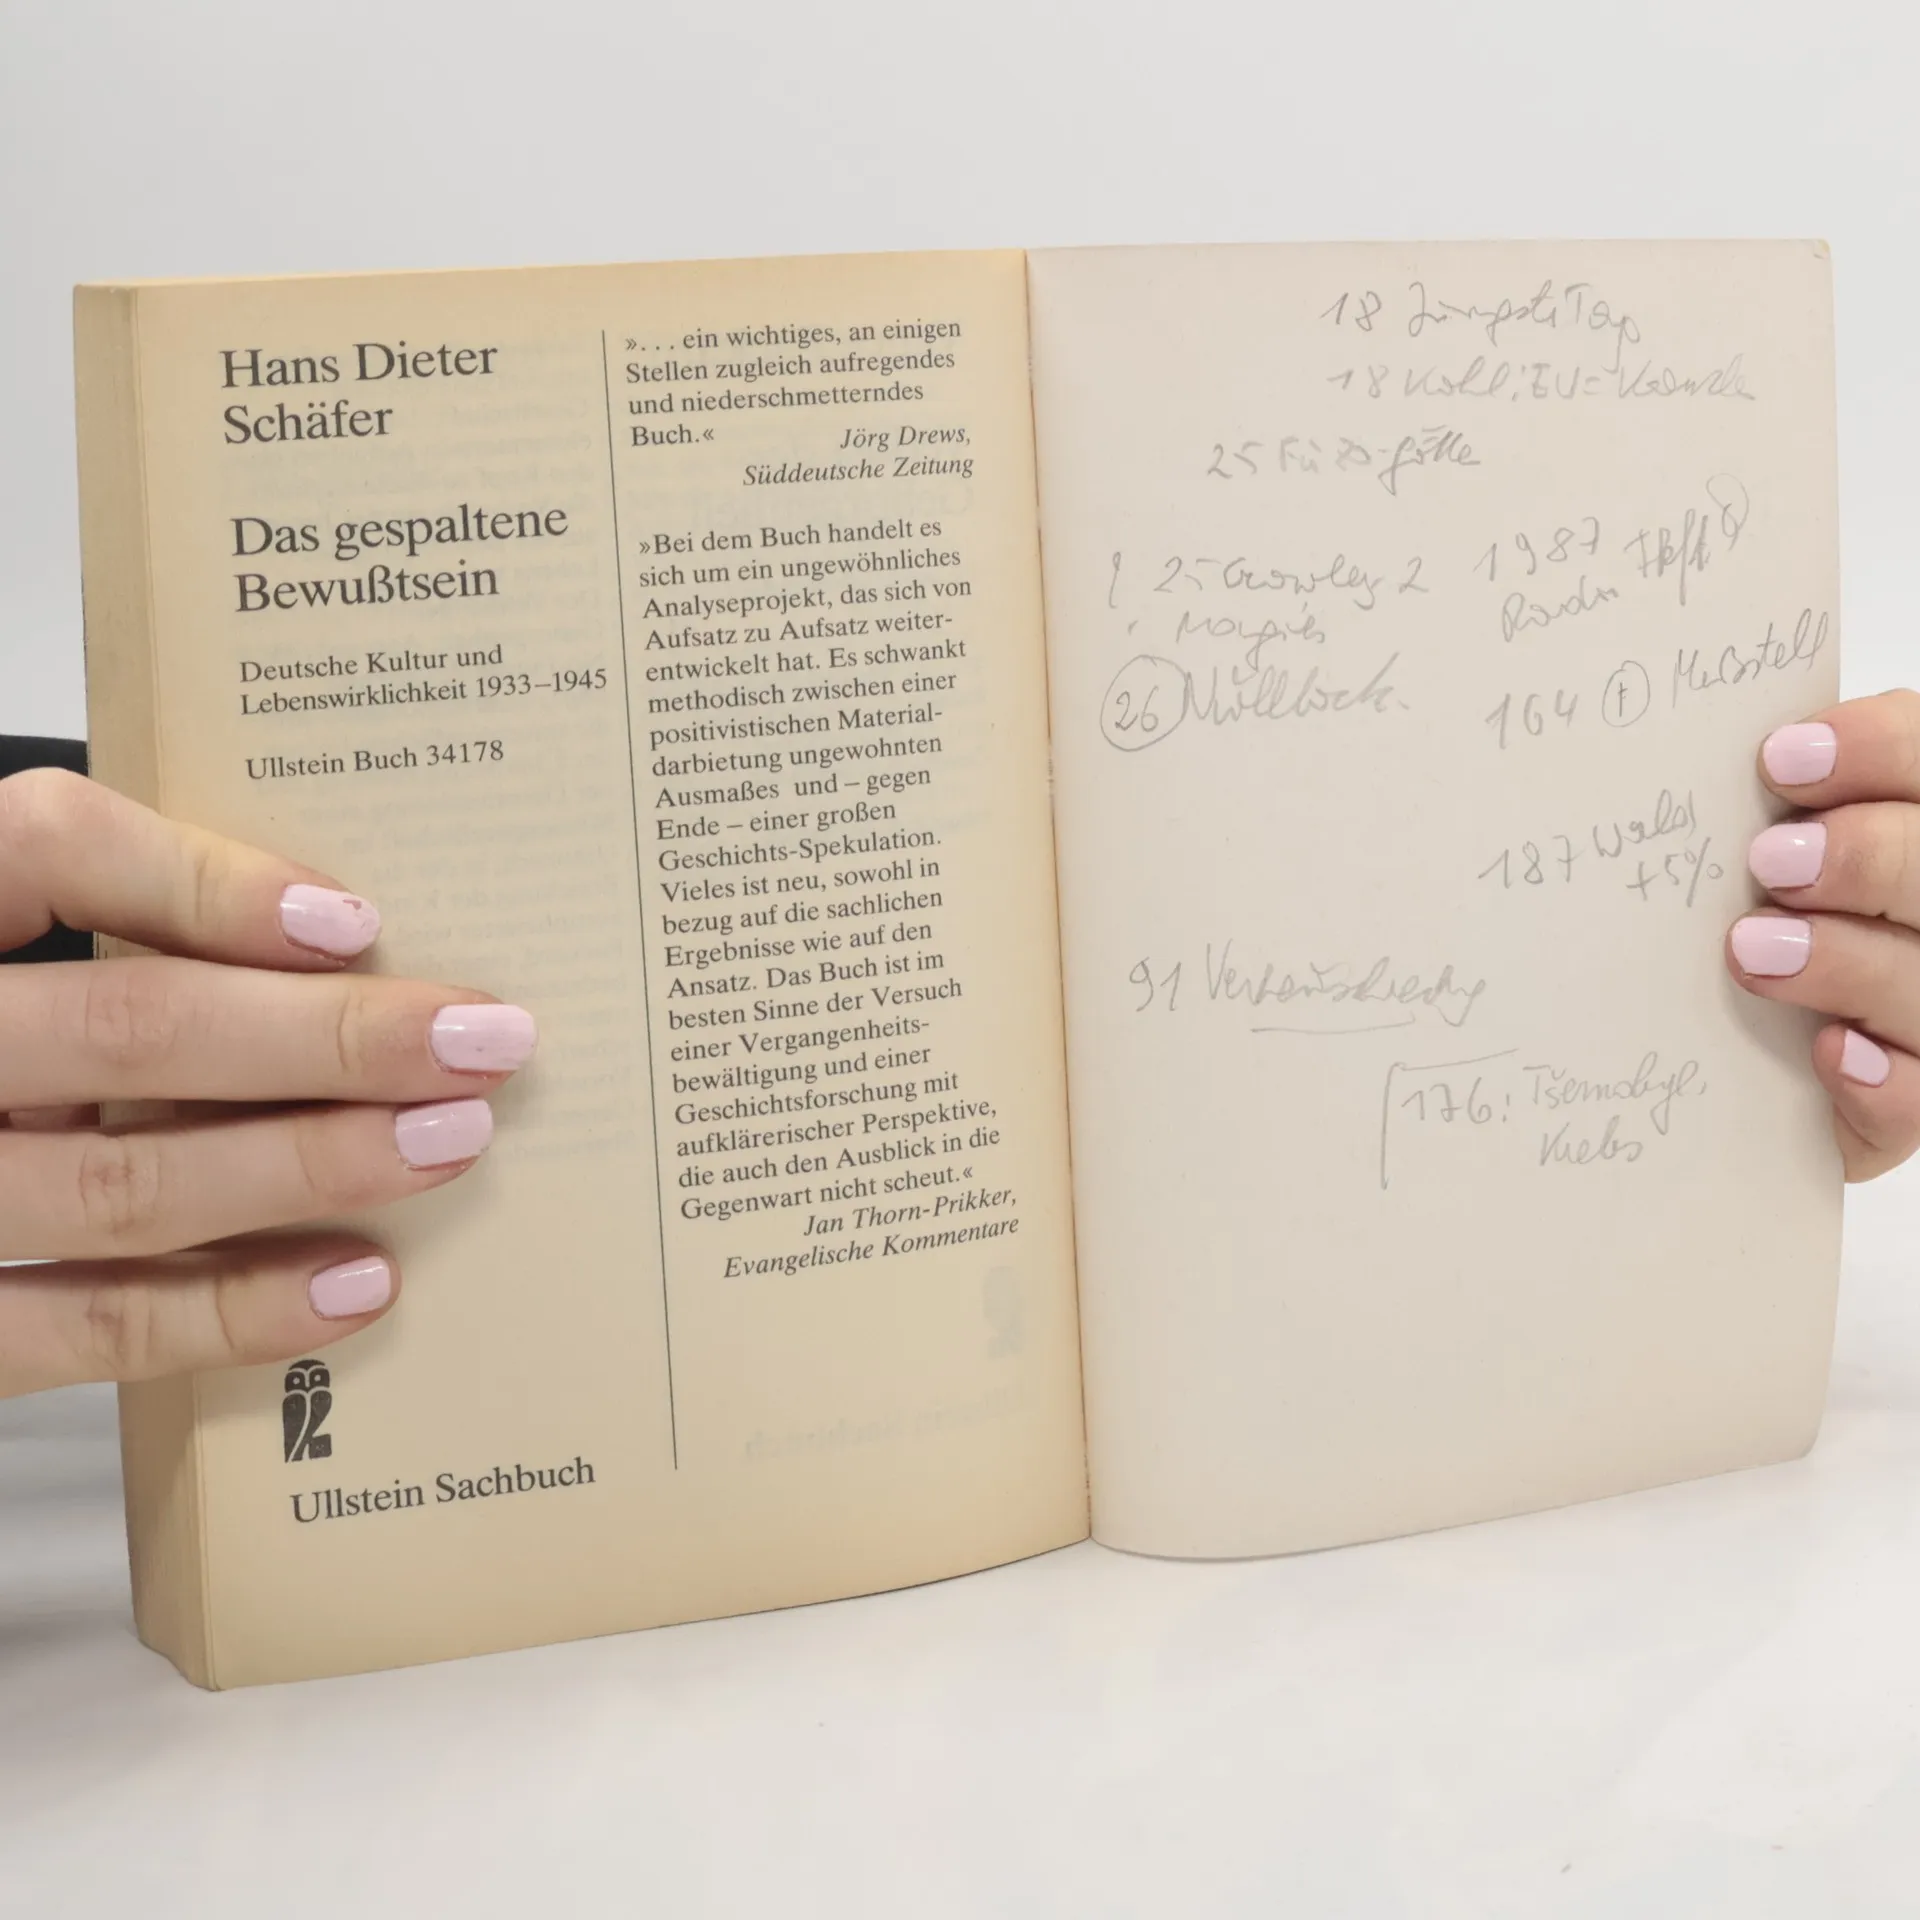 Hans Dieter
Schäfer
Das gespaltene
Bewußtsein
Deutsche Kultur und
Lebenswirklichkeit 1933–1945
Ullstein Buch 34178
Ullstein Sachbuch
». . . ein wichtiges, an einigen
Stellen zugleich aufregendes
und niederschmetterndes
Buch.«
Jörg Drews,
Süddeutsche Zeitung
»Bei dem Buch handelt es
sich um ein ungewöhnliches
Analyseprojekt, das sich von
Aufsatz zu Aufsatz weiter-
entwickelt hat. Es schwankt
methodisch zwischen einer
positivistischen Material-
darbietung ungewohnten
Ausmaßes und – gegen
Ende – einer großen
Geschichts-Spekulation.
Vieles ist neu, sowohl in
bezug auf die sachlichen
Ergebnisse wie auf den
Ansatz. Das Buch ist im
besten Sinne der Versuch
einer Vergangenheits-
bewältigung und einer
Geschichtsforschung mit
aufklärerischer Perspektive,
die auch den Ausblick in die
Gegenwart nicht scheut.«
Jan Thorn-Prikker,
Evangelische Kommentare
18 Tag
18 Kohl:
25
25 Crowley 2
1987
26
164 F
187 Wald
+5%
91
176: Tšernobyl,
Krebs